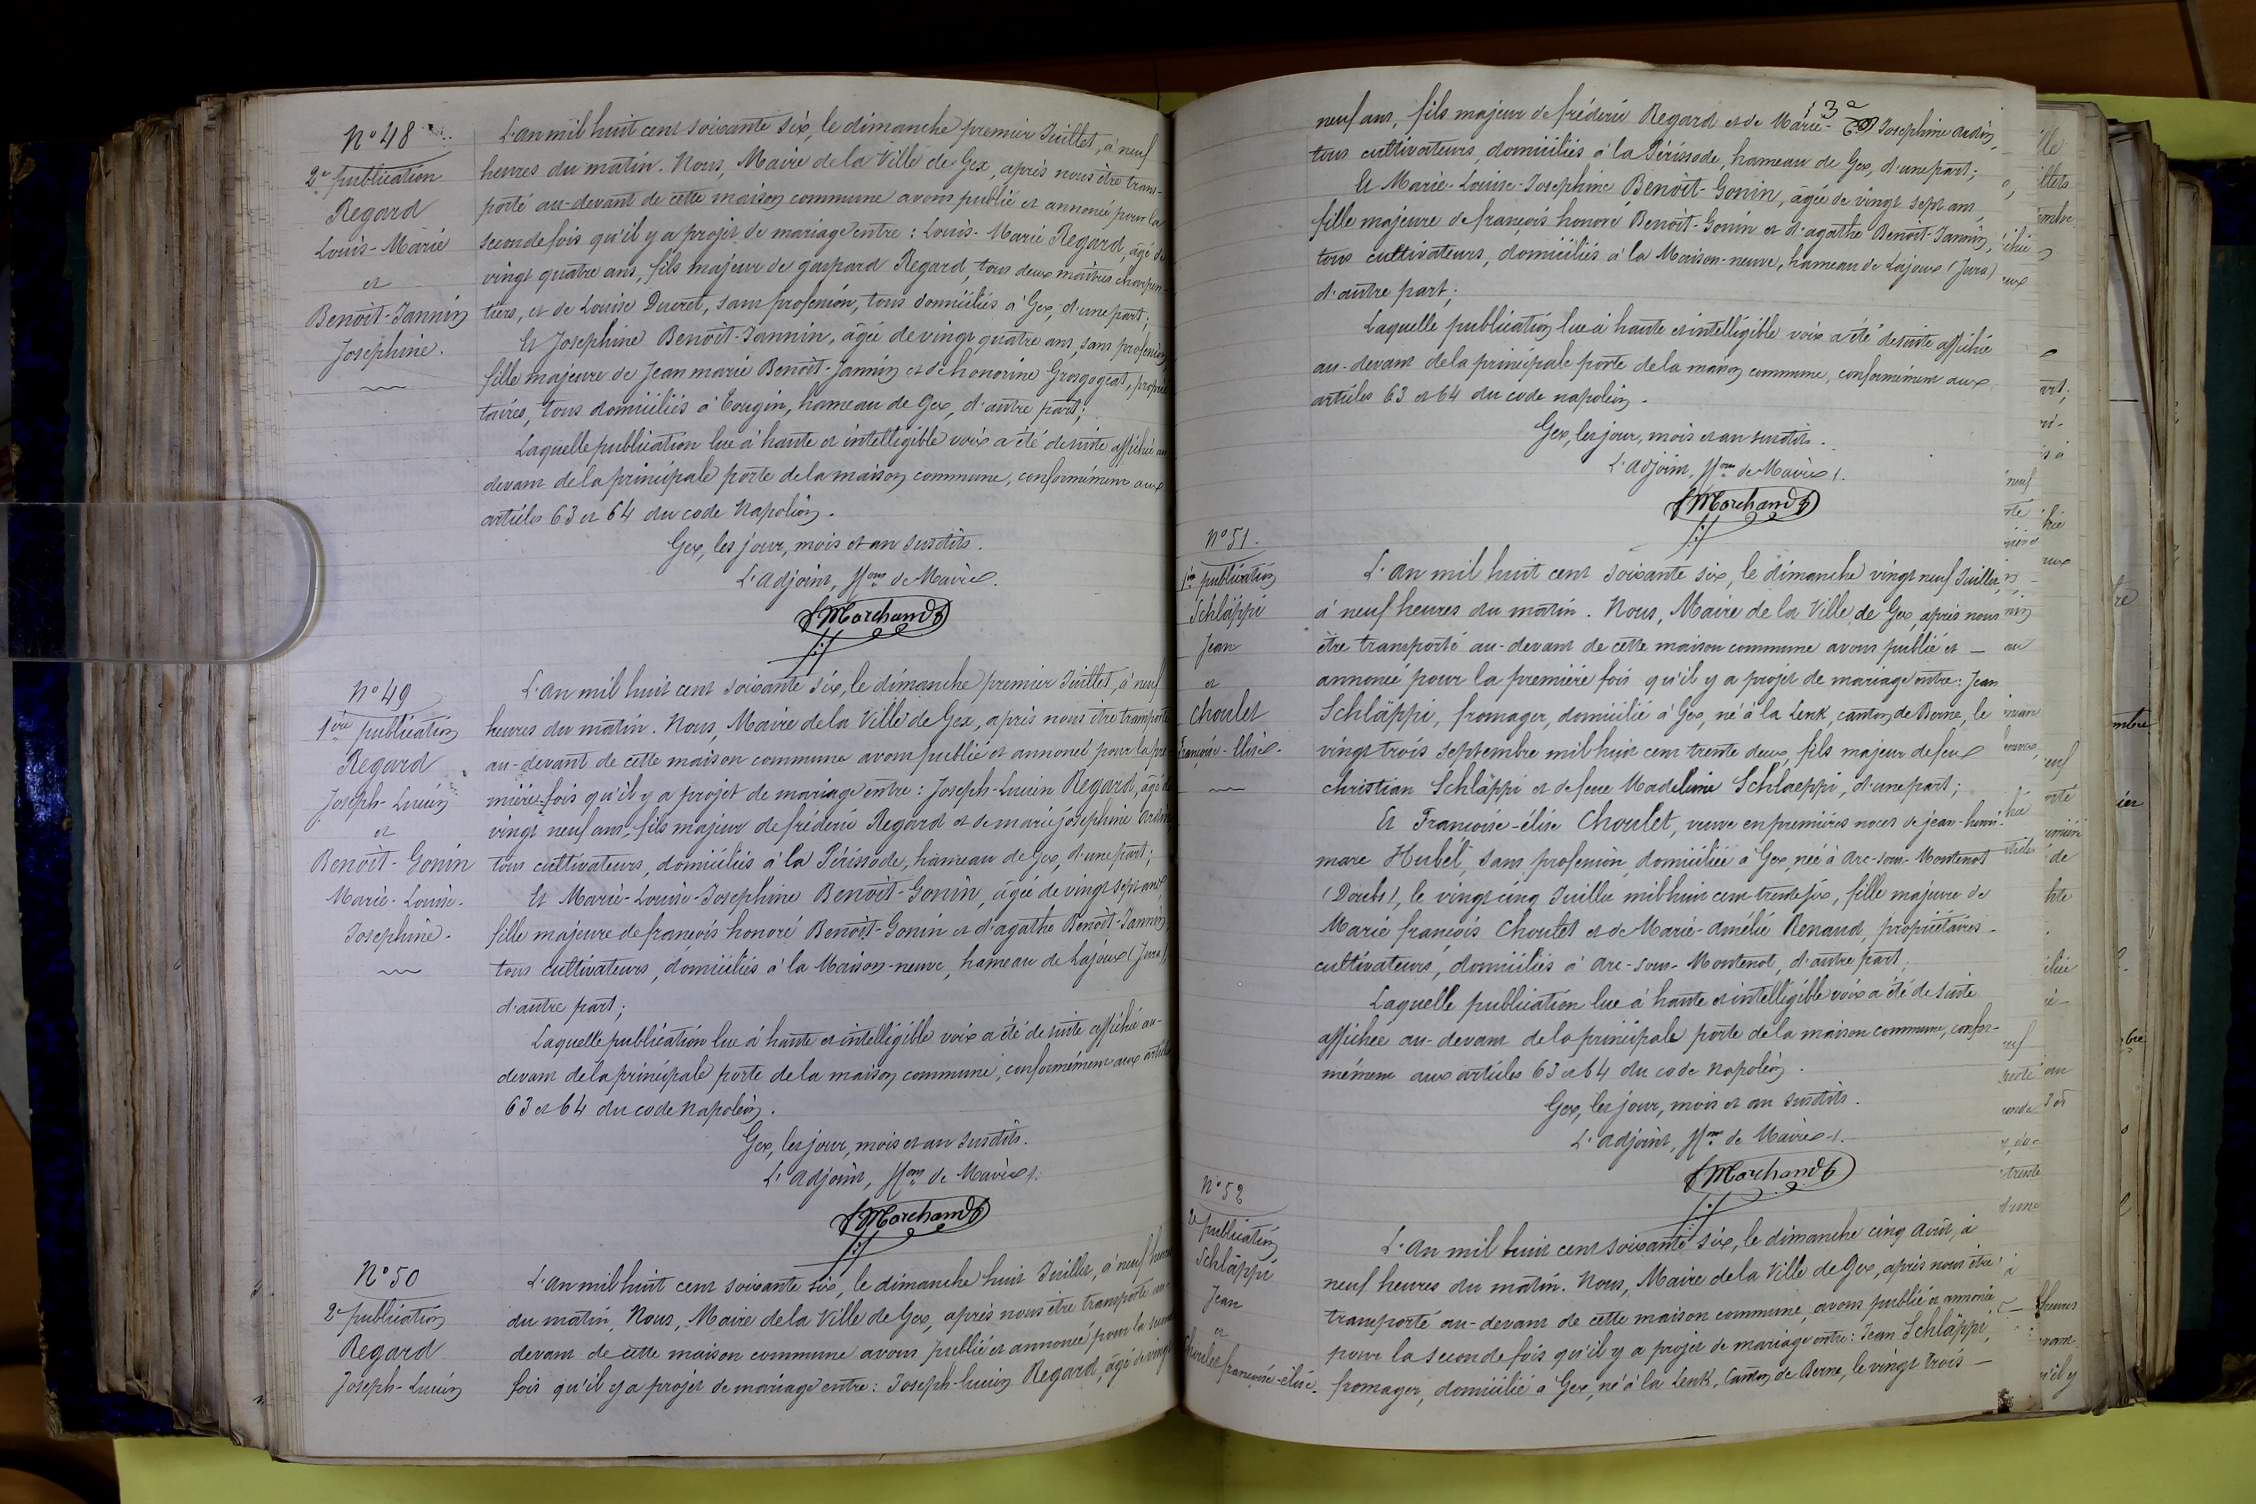 N° 48
2e publication
Regard
Louis-Marie
et
Benoît-Jannin
Josephine.
L'an mil huit cent soixante six, le dimanche premier Juillet, à neuf
heures du matin. Nous, Maire de la Ville de Gex, après nous être trans-
porté au-devant de cette maison commune avons publié et annoncé pour la
seconde fois qu'il y a projet de mariage entre : Louis-Marie Regard, âgé de
vingt quatre ans, fils majeur de gaspard Regard, tous deux maîtres charpen-
tiers, et de Louise Ducret, sans profession, tous domiciliés à Gex, d'une part;
Et Josephine Benoît-Jannin, âgée de vingt quatre ans, sans profession,
fille majeure de Jean marie Benoît-Jannin et de honorine Grosgogeat, proprié
taires, tous domiciliés à Tougin, hameau de Gex, d'autre part;
Laquelle publication lue à haute et intelligible voix a été de suite affichée au
devant de la principale porte de la maison commune, conformément aux
articles 63 et 64 du code Napoléon.
Gex, les jour, mois et an susdits.
L'Adjoint, ffons de Maire.
Marchand
N° 49
1ère publication
Regard
Joseph-Lucien
et
Benoît-Gonin
Marie-Louise-
Josephine.
L'an mil huit cent soixante six, le dimanche premier Juillet, à neuf
heures du matin. Nous, Maire de la Ville de Gex, après nous être transporté
au-devant de cette maison commune avons publié et annoncé pour la pre
mière fois qu'il y a projet de mariage entre : Joseph-Lucien Regard, âgé de
vingt neuf ans, fils majeur de frédéric Regard et de marie joséphine
tous cultivateurs, domiciliés à la Périssode, hameau de Gex, d'une part;
Et Marie-Louise-Josephine Benoît-Gonin, âgée de vingt sept ans,
fille majeure de françois honoré Benoît-Gonin et d'agathe Benoît-Jannin,
tous cultivateurs, domiciliés à la Maison-neuve, hameau de Lajoux (Jura),
d'autre part;
Laquelle publication lue à haute et intelligible voix a été de suite affichée au-
devant de la principale porte de la maison commune, conformément aux articles
63 et 64 du code napoléon.
Gex, les jour, mois et an susdits.
L'adjoint, ffons de Maire.
Marchand
N° 50
2e publication
Regard
Joseph-Lucien
L'an mil huit cent soixante six, le dimanche huit Juillet, à neuf heures
du matin, Nous, Maire de la Ville de Gex, après nous être transporté au-
devant de cette maison commune avons publié et annoncé pour la seconde
fois qu'il y a projet de mariage entre : Joseph-lucien Regard, âgé de vingt
neuf ans, fils majeur de frédéric Regard et de Marie- Josephine
tous cultivateurs, domiciliés à la Périssode, hameau de Gex, d'une part;
Et Marie-Louise-Josephine Benoît-Gonin, âgée de vingt sept ans,
fille majeure de françois honoré Benoît-Gonin et d'agathe Benoît-Jannin,
tous cultivateurs, domiciliés à la Maison-neuve, hameau de Lajoux (Jura)
d'autre part;
Laquelle publication lue à haute et intelligible voix a été de suite affichée
au-devant de la principale porte de la maison commune, conformément aux
articles 63 et 64 du code napoléon.
Gex, les jour, mois et an susdits.
L'adjoint, ffons de Maire.
Marchand
N° 51.
1ère publication
Schläppi
Jean
et
Choulet
françoise-Elise.
L'an mil huit cent soixante six, le dimanche vingt neuf Juillet,
à neuf heures du matin. Nous, Maire de la Ville de Gex, après nous
être transporté au-devant de cette maison commune avons publié et —
annoncé pour la première fois qu'il y a projet de mariage entre : Jean
Schläppi, fromager, domicilié à Gex, né à la Lenk, canton de Berne, le
vingt trois septembre mil huit cent trente deux, fils majeur de feu
christian Schläppi et de feue Madeleine Schlaeppi, d'une part;
Et Françoise-élise Choulet, veuve en premières noces de jean-henri-
marc Hubel, sans profession, domiciliée à Gex, née à Arc-sous-Montenot
(Doubs), le vingt cinq Juillet mil huit cent trente six, fille majeure de
Marie françois Choulet et de Marie-Amélie Renaud, propriétaires-
cultivateurs, domiciliés à Arc-sous-Montenot, d'autre part.
Laquelle publication lue à haute et intelligible voix a été de suite
affichée au-devant de la principale porte de la maison commune, confor-
mément aux articles 63 et 64 du code napoléon.
Gex, les jour, mois et an susdits.
L'adjoint, ffons de Maire.
Marchand
N° 52
2e publication
Schläppi
Jean
et
Choulet françoise-élise.
L'an mil huit cent soixante six, le dimanche cinq Août, à
neuf heures du matin. Nous, Maire de la Ville de Gex, après nous être
transporté au-devant de cette maison commune, avons publié et annoncé
pour la seconde fois qu'il y a projet de mariage entre : Jean Schläppi,
fromager, domicilié à Gex, né à la Lenk, Canton de Berne, le vingt trois —